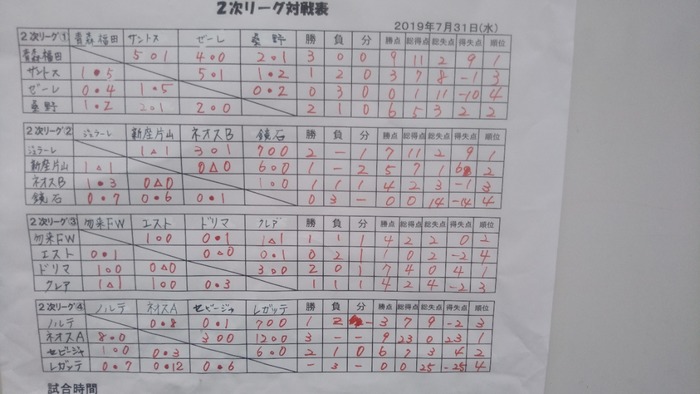 2次リーグ対戦表
2019年7月31日(水)
2次リーグ① 青森福田 サントス ゼーレ 桑野 勝 負 分 勝点 総得点 総失点 得失点 順位
青森福田 5○1 4○0 2○1 3 0 0 9 11 2 9 1
サントス 1●5 5○1 1●2 1 2 0 3 7 8 -1 3
ゼーレ 0●4 1●5 0●2 0 3 0 0 1 11 -10 4
桑野 1●2 2○1 2○0 2 1 0 6 5 3 2 2
2次リーグ② 新座片山 ネオスB 鏡石 勝 負 分 勝点 総得点 総失点 得失点 順位
1△1 3○1 7○0 2 - 1 7 11 2 9 1
新座片山 1△1 0△0 6○0 1 - 2 5 7 1 6 2
ネオスB 1●3 0△0 1○0 1 1 1 4 2 3 -1 3
鏡石 0●7 0●6 0●1 0 3 - 0 0 14 -14 4
2次リーグ③ 勿来FW エスト ドリマ クレア 勝 負 分 勝点 総得点 総失点 得失点 順位
勿来FW 1○0 0●1 1△1 1 1 1 4 2 2 0 2
エスト 0●1 0△0 0●1 0 2 1 1 0 2 -2 4
ドリマ 1○0 0△0 3○0 2 0 1 7 4 0 4 1
クレア 1△1 1○0 0●3 1 1 1 4 2 4 -2 3
2次リーグ④ ノルテ ネオスA セビージャ レガッテ 勝 負 分 勝点 総得点 総失点 得失点 順位
ノルテ 0●8 0●1 7○0 1 2 - 3 7 9 -2 3
ネオスA 8○0 3○0 12○0 3 - - 9 23 0 23 1
セビージャ 1○0 0●3 6○0 2 1 0 6 7 3 4 2
レガッテ 0●7 0●12 0●6 - 3 - 0 0 25 -25 4
試合時間